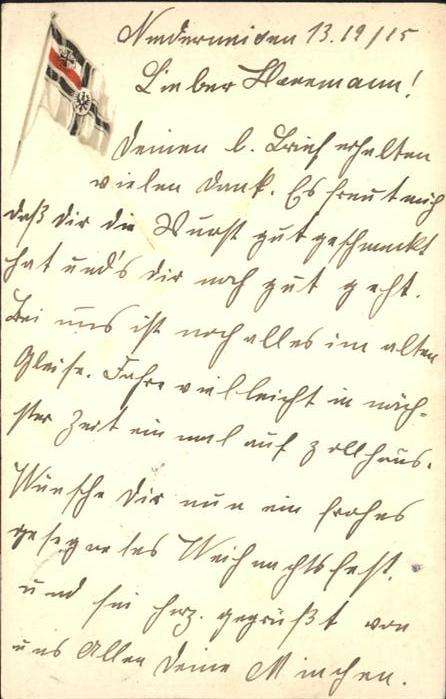 Niedermeisen 13.12/15
Lieber Heremann!
Deinen l. Brief erhalten
vielen Dank. Es freut mich
daß dir die Wurst gut geschmeckt
hat und's dir noch gut geht.
Bei uns ist noch alles im alten
Gleise. Fahre vielleicht in näch-
ster Zeit ein mal auf Zollhaus.
Wünsche Dir nun ein frohes
gesegnetes Weihnachtsfest.
und sei herz. gegrüßt von
uns Allen Deine Minchen.